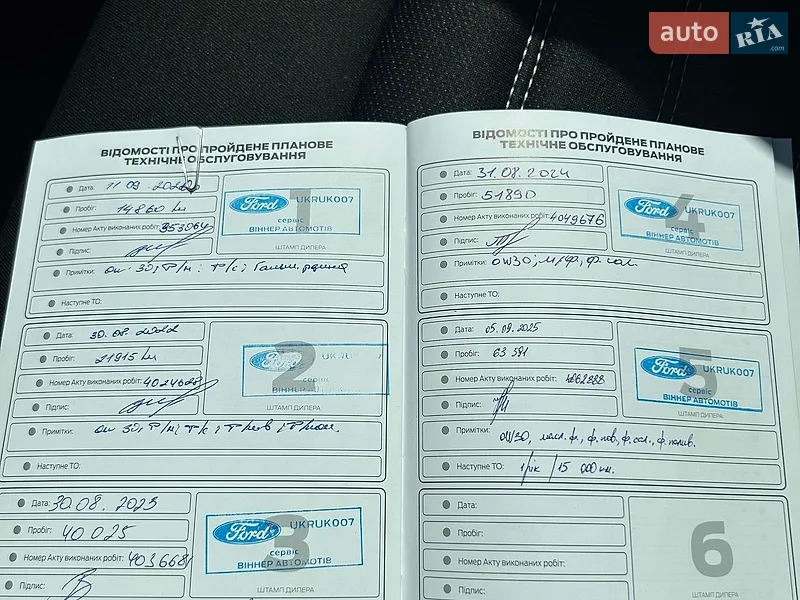 auto RIA.com
ВІДОМОСТІ ПРО ПРОЙДЕНЕ ПЛАНОВЕ
ТЕХНІЧНЕ ОБСЛУГОВУВАННЯ
1
Дата: 11 09
Пробіг: 14860 км
Номер Акту виконаних робіт:
Підпис:
Ford UKRUK007
сервіс
ВІННЕР АВТОМОТІВ
ШТАМП ДИЛЕРА
Примітки:
Наступне ТО:
2
Дата: 30.08.2022
Пробіг: 21915 км
Номер Акту виконаних робіт: 4024628
Підпис:
Ford
сервіс
ВІННЕР АВТОМОТІВ
ШТАМП ДИЛЕРА
Примітки:
Наступне ТО:
3
Дата: 30.08.2023
Пробіг: 40025
Номер Акту виконаних робіт: 4036681
Підпис:
Ford UKRUK007
сервіс
ВІННЕР АВТОМОТІВ
ШТАМП ДИЛЕРА
ВІДОМОСТІ ПРО ПРОЙДЕНЕ ПЛАНОВЕ
ТЕХНІЧНЕ ОБСЛУГОВУВАННЯ
4
Дата: 31.08.2024
Пробіг: 51890
Номер Акту виконаних робіт: 4049676
Підпис:
Ford UKRUK007
сервіс
ВІННЕР АВТОМОТІВ
ШТАМП ДИЛЕРА
Примітки: 0W30, м/ф, ф. сал.
Наступне ТО:
5
Дата: 05.09.2025
Пробіг: 63 591
Номер Акту виконаних робіт: 4062888
Підпис:
Ford UKRUK007
сервіс
ВІННЕР АВТОМОТІВ
ШТАМП ДИЛЕРА
Примітки: 0W30, масл. ф., ф. пов, ф. сал., ф. палив.
Наступне ТО: 1 рік / 15 000 км.
6
Дата:
Пробіг:
Номер Акту виконаних робіт:
Підпис:
ШТАМП ДИЛЕРА